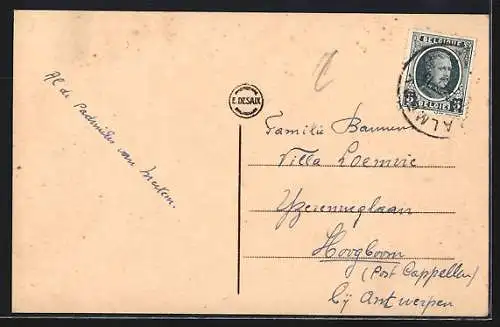 Al de Padvinders van Merksem.
E. DESAIX
BELGIQUE
5 5
BELGIË
ALM
Familie Bannen
Villa Loemvie
Yzerenweglaan
Hoogboom
(Post Cappellen)
bij Antwerpen